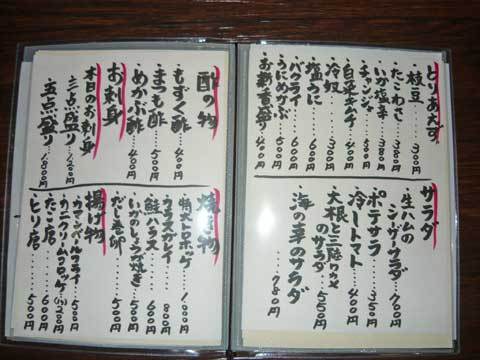 とりあえず
枝豆・・・300円
たこわさ・・・380円
いか塩辛・・・380円
チャンジャ・・・400円
白菜キムチ・・・400円
冷奴・・・400円
塩うに・・・600円
バクライ・・・600円
うにめかぶ・・・500円
お新香盛り・・・400円
サラダ
生ハムの
シーザーサラダ・・・700円
ポテサラ・・・350円
冷しトマト・・・400円
大根と三陸ワカメ
のサラダ・・・550円
海の幸のサラダ
・・・780円
酢の物
もずく酢・・・400円
まつも酢・・・500円
めかぶ酢・・・400円
お刺身
本日のお刺身
三点盛り・・・1200円
五点盛り・・・1800円
焼き物
特大トロホッケ・・・1,000円
カラスガレイ・・・800円
鮭ハラス・・・600円
いかのしょうが焼き・・・500円
だし巻卵・・・500円
揚げ物
カマンベールフライ・・・500円
カニクリームコロッケ(1ヶ)200円
たこ唐・・・600円
とり唐・・・500円